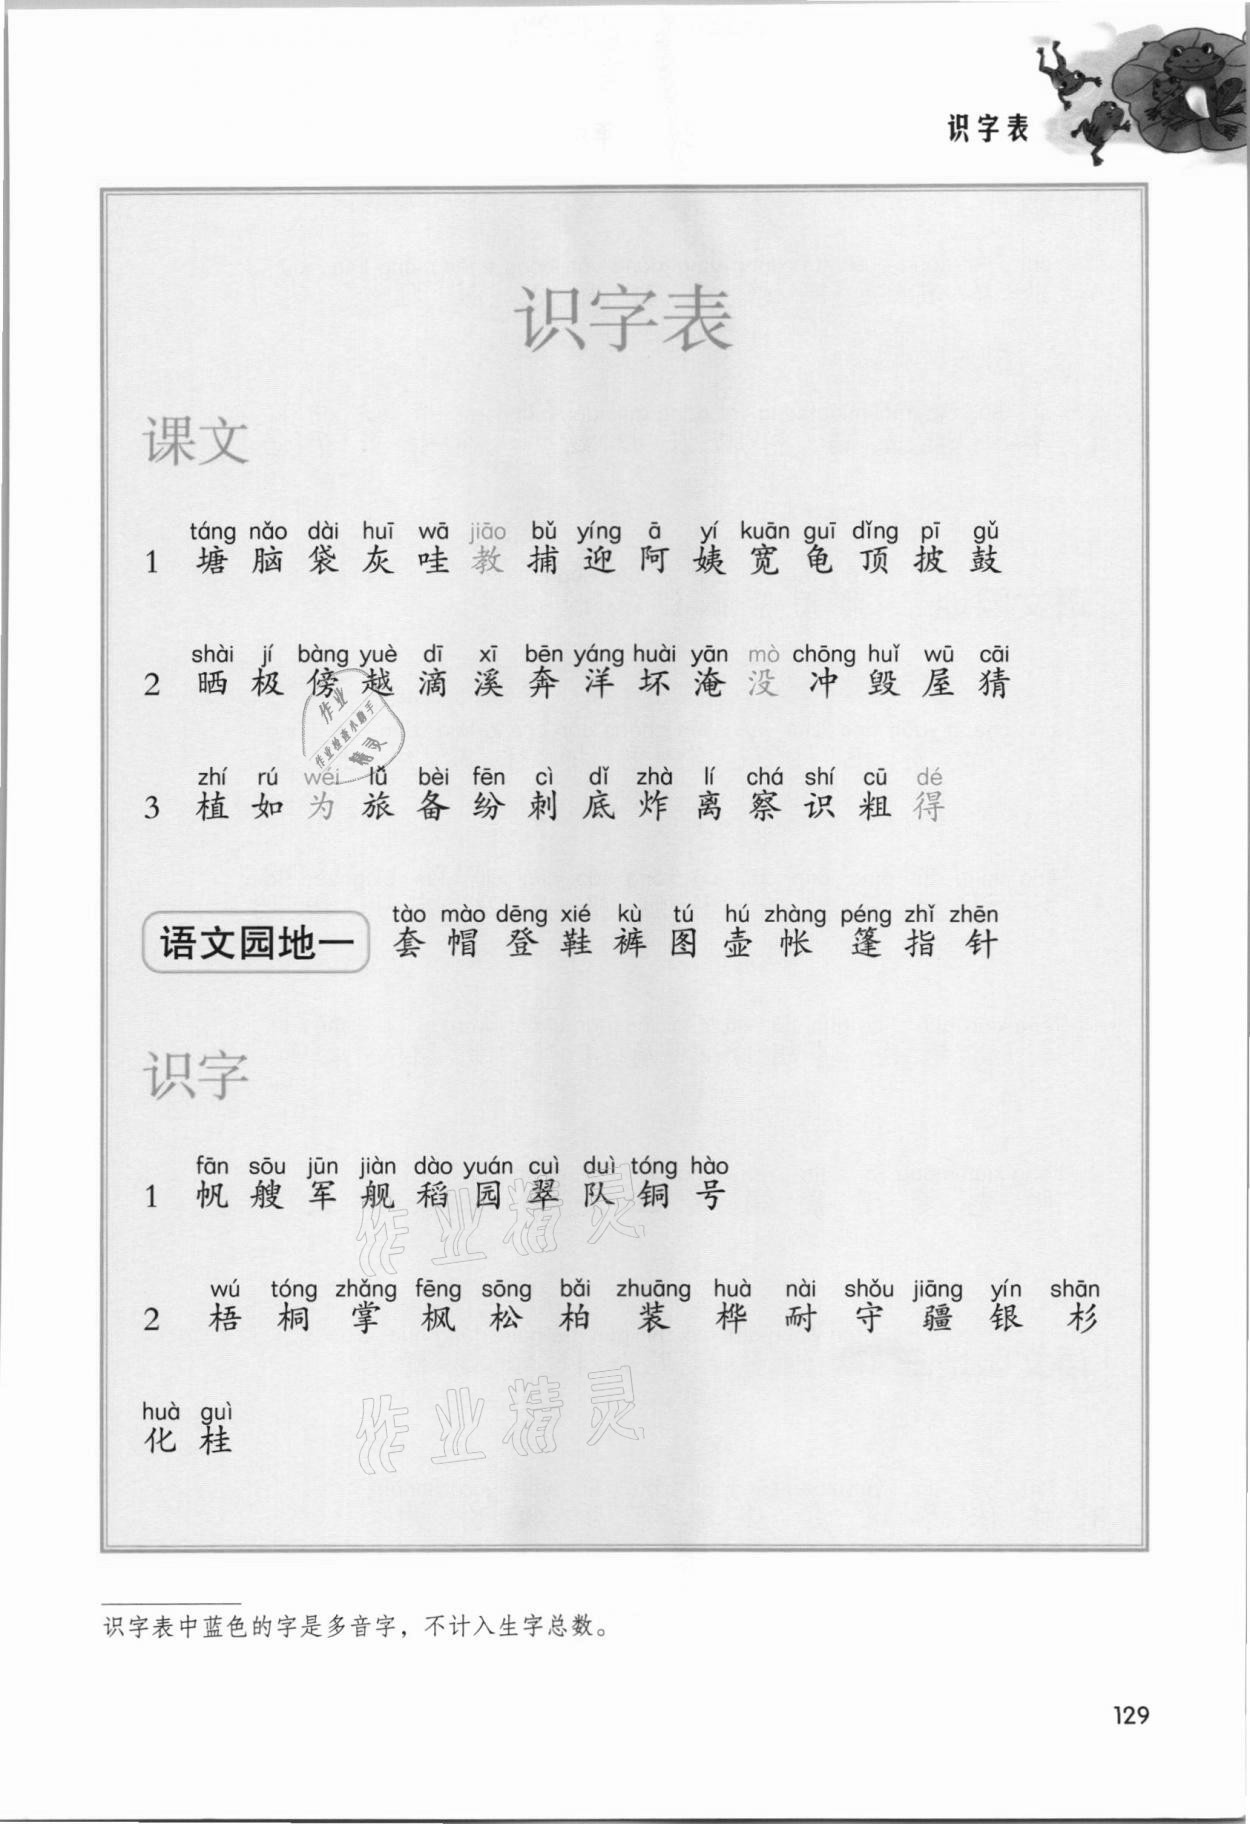 识字表
识字表
课文
táng nǎo dài huī wā jiāo bǔ yíng ā yí kuān guī dǐng pī gǔ
1 塘 脑 袋 灰 哇 教 捕 迎 阿 姨 宽 龟 顶 披 鼓
shài jí bàng yuè dī xī bēn yáng huài yān mò chōng huǐ wū cāi
2 晒 极 傍 越 滴 溪 奔 洋 坏 淹 没 冲 毁 屋 猜
作业
作业检查小助手
精灵
zhí rú wéi lǚ bèi fēn cì dǐ zhà lí chá shí cū dé
3 植 如 为 旅 备 纷 刺 底 炸 离 察 识 粗 得
tào mào dēng xié kù tú hú zhàng péng zhǐ zhēn
语文园地一 套 帽 登 鞋 裤 图 壶 帐 篷 指 针
识字
fān sōu jūn jiàn dào yuán cuì duì tóng hào
1 帆 艘 军 舰 稻 园 翠 队 铜 号
作业精灵
wú tóng zhǎng fēng sōng bǎi zhuāng huà nài shǒu jiāng yín shān
2 梧 桐 掌 枫 松 柏 装 桦 耐 守 疆 银 杉
作业精灵
huà guì
化 桂
识字表中蓝色的字是多音字，不计入生字总数。
129